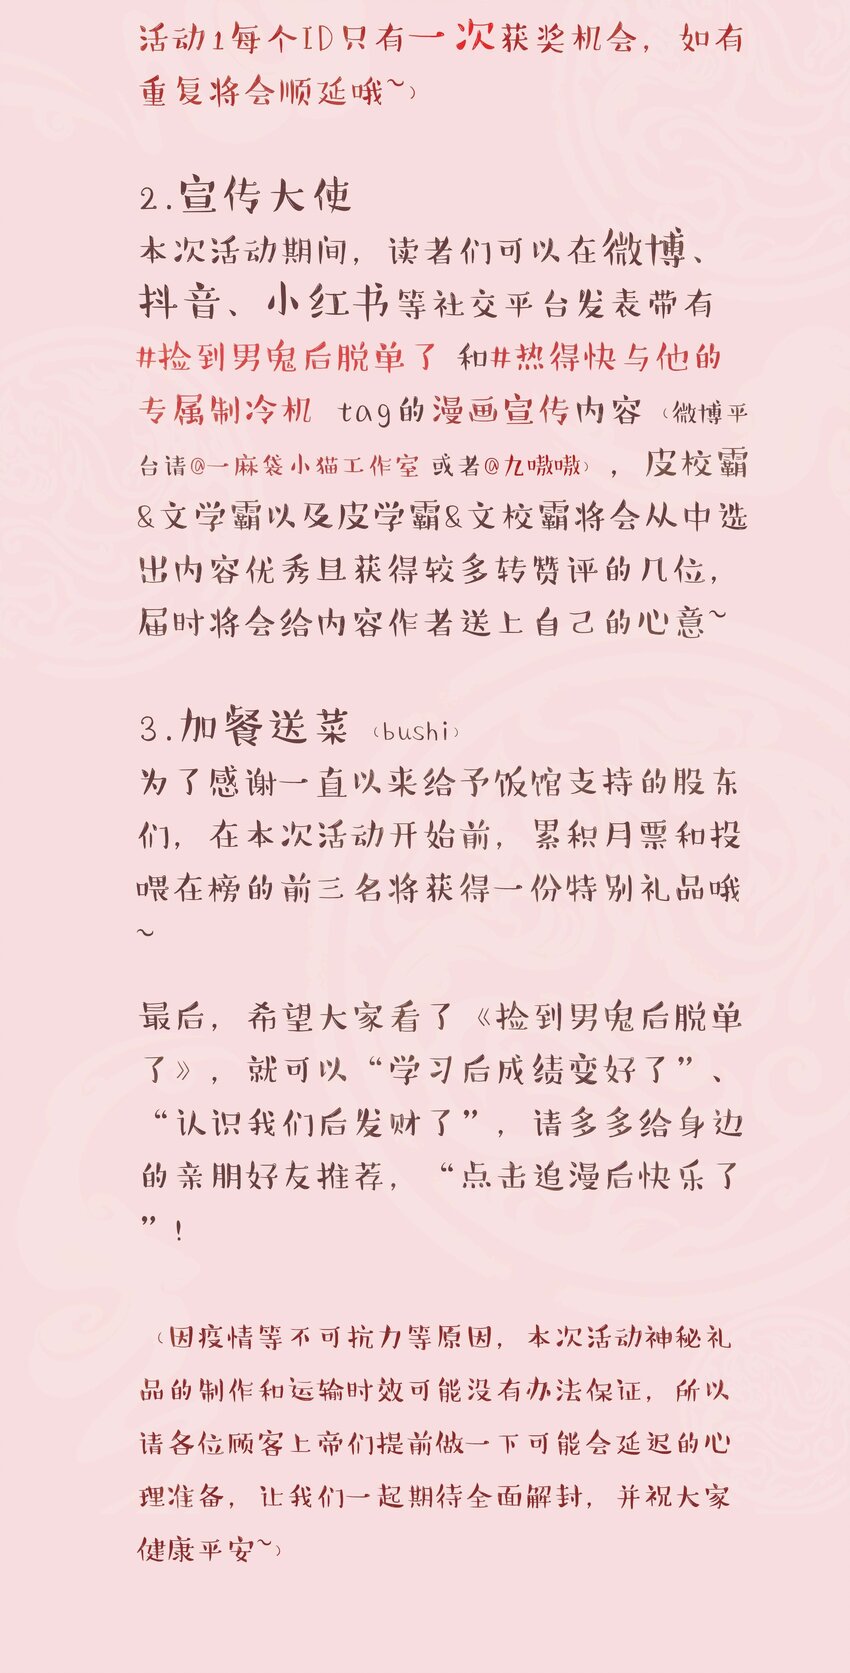 活动1每个ID只有一次获奖机会，如有
重复将会顺延哦~）
2.宣传大使
本次活动期间，读者们可以在微博、
抖音、小红书等社交平台发表带有
#捡到男鬼后脱单了 和#热得快与他的
专属制冷机 tag的漫画宣传内容（微博平
台请@一麻袋小猫工作室 或者@九嗷嗷），皮校霸
&文学霸以及皮学霸&文校霸将会从中选
出内容优秀且获得较多转赞评的几位，
届时将会给内容作者送上自己的心意~
3.加餐送菜（bushi）
为了感谢一直以来给予饭馆支持的股东
们，在本次活动开始前，累积月票和投
喂在榜的前三名将获得一份特别礼品哦
~
最后，希望大家看了《捡到男鬼后脱单
了》，就可以“学习后成绩变好了”、
“认识我们后发财了”，请多多给身边
的亲朋好友推荐，“点击追漫后快乐了
”！
（因疫情等不可抗力等原因，本次活动神秘礼
品的制作和运输时效可能没有办法保证，所以
请各位顾客上帝们提前做一下可能会延迟的心
理准备，让我们一起期待全面解封，并祝大家
健康平安~）